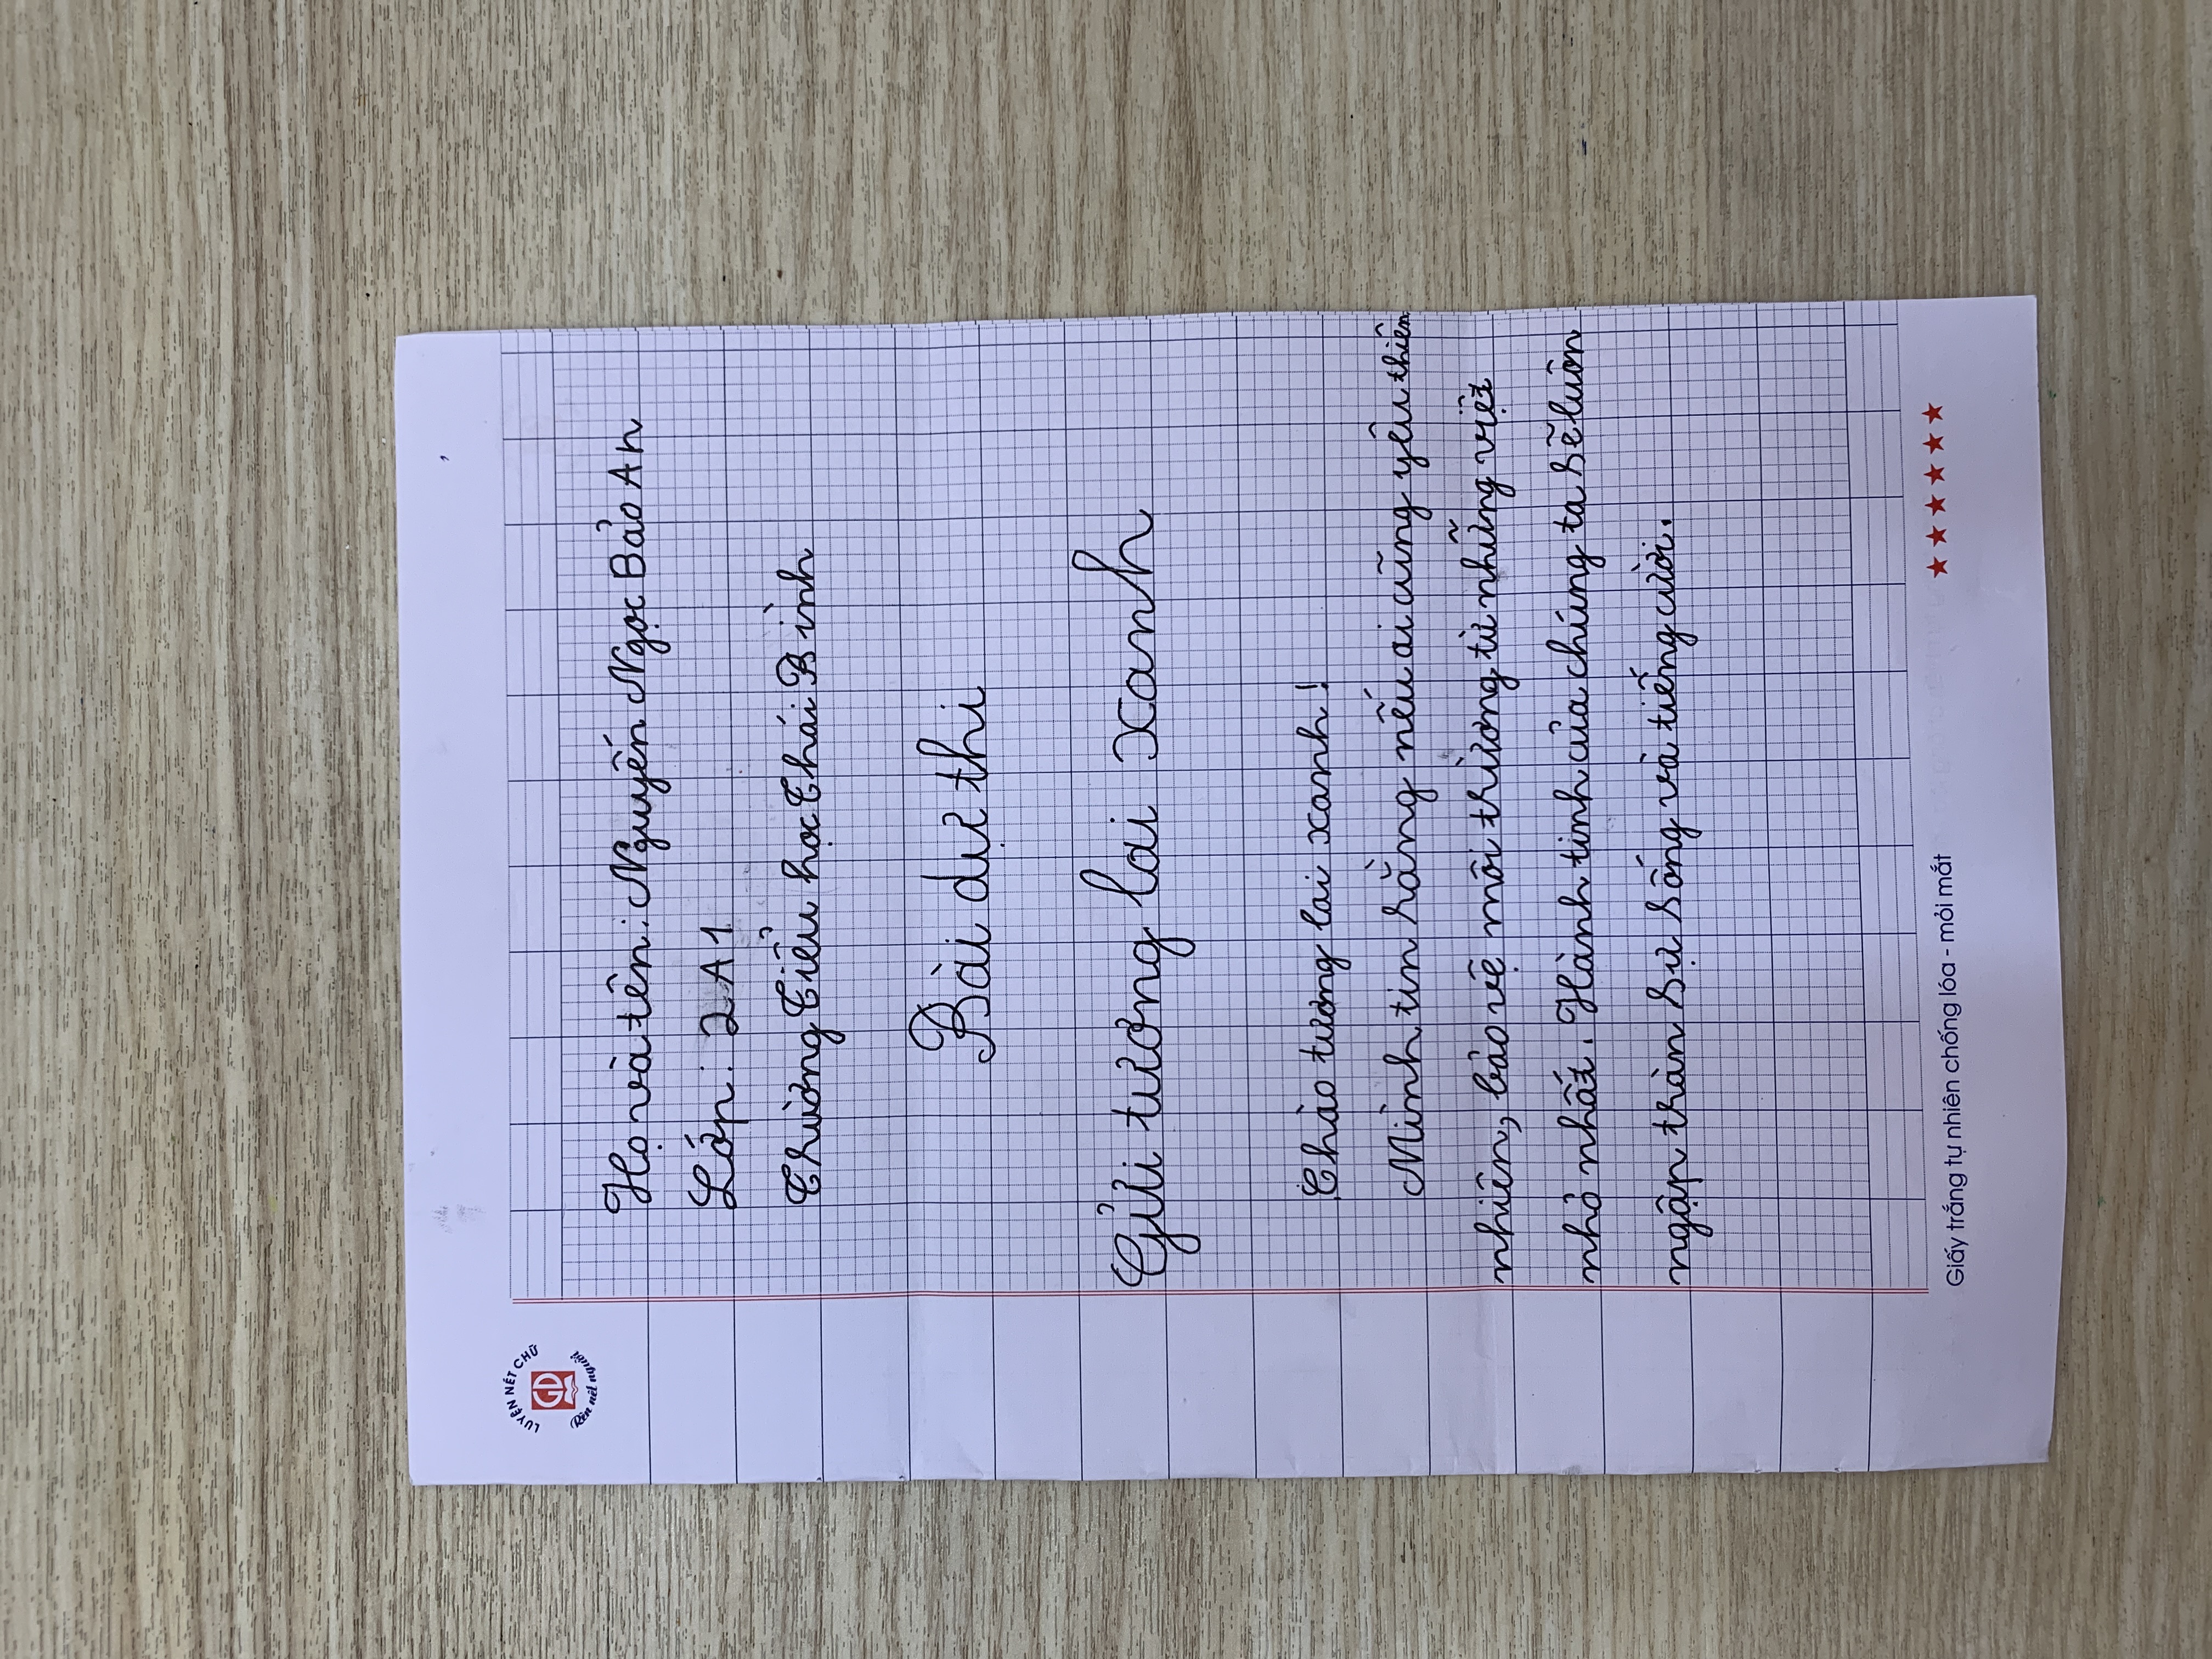 LUYỆN NÉT CHỮ
GD
Rèn nết người
Họ và tên: Nguyễn Ngọc Bảo An
Lớp: 2A1
Trường Tiểu học Thái Bình
Bài dự thi
Gửi tương lai xanh
Chào tương lai xanh!
Mình tin rằng nếu ai cũng yêu thiên
nhiên, bảo vệ môi trường từ những việt
nhỏ nhất. Hành tinh của chúng ta sẽ luôn
ngập tràn sự sống và tiếng cười.
Giấy trắng tự nhiên chống lóa - mỏi mắt